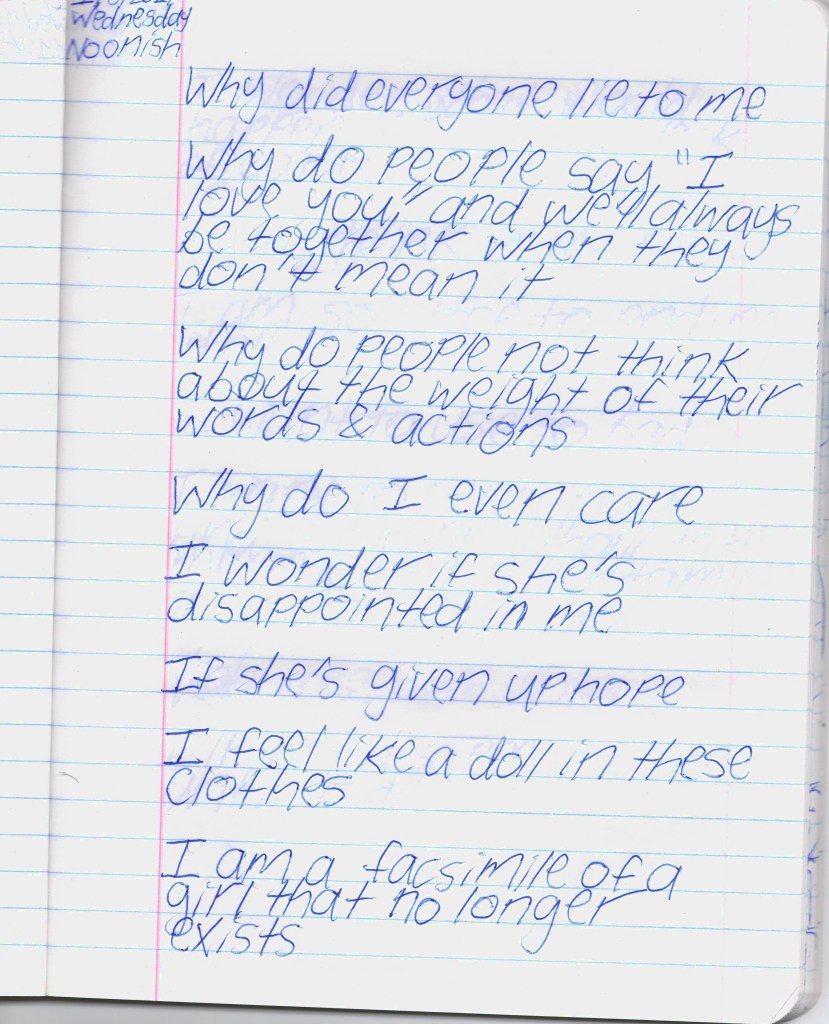 Wednesday
Noonish
Why did everyone lie to me
Why do people say "I
love you" and we'll always
be together when they
don't mean it
Why do people not think
about the weight of their
words & actions
Why do I even care
I wonder if she's
disappointed in me
If she's given up hope
I feel like a doll in these
clothes
I am a facsimile of a
girl that no longer
exists